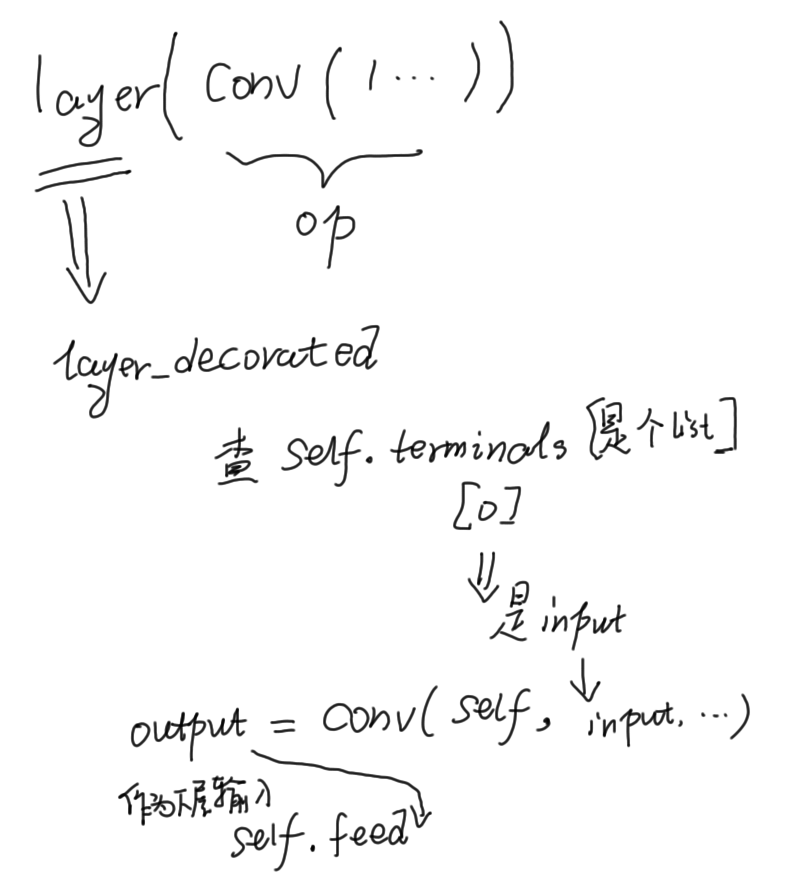 layer(conv(1...))
op
layer_decorated
查 self.terminals [是个list]
[0]
是input
output = conv(self, input, ...)
作为下层输入
self.feed